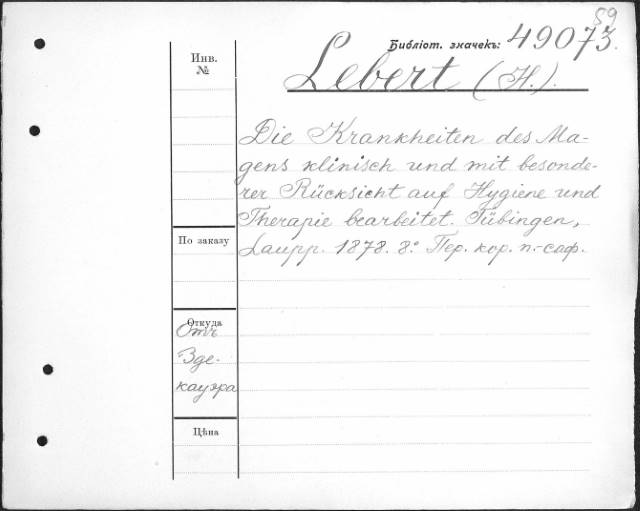 59
Библіот. значекъ: 49073.
Инв. №
Lebert (H.).
Die Krankheiten des Ma-
gens klinisch und mit besonde-
rer Rücksicht auf Hygiene und
Therapie bearbeitet. Tübingen,
Laupp. 1878. 8.° Пер. кор. п.-саф.
По заказу
Откуда
Отъ
Зде-
кауэра
Цѣна